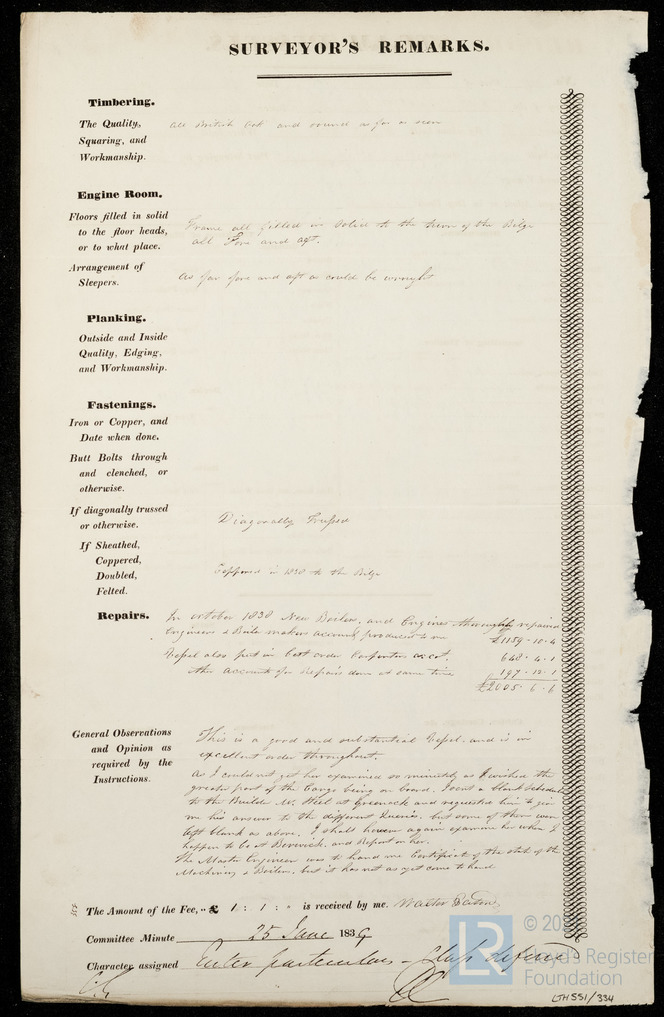 SURVEYOR'S REMARKS.
Timbering.
The Quality,
Squaring, and
Workmanship.
all British Oak and sound as far as seen
Engine Room.
Floors filled in solid
to the floor heads,
or to what place.
Frame all filled in Solid to the turn of the Bilge
all Fore and aft.
Arrangement of
Sleepers.
As far fore and aft as could be wrought
Planking.
Outside and Inside
Quality, Edging,
and Workmanship.
Fastenings.
Iron or Copper, and
Date when done.
Butt Bolts through
and clenched, or
otherwise.
If diagonally trussed
or otherwise.
Diagonally Trussed
If Sheathed,
Coppered,
Doubled,
Felted.
Coppered in 1838 to the Bilge
Repairs.
In October 1838 New Boilers, and Engines thoroughly repaired
Engineers & Boiler makers account produced to me £1159-10-4
Vessel also put in best order Carpenters acct. 648-4-1
Other accounts for Repairs done at same time 197-12-1
£2005-6-6
General Observations
and Opinion as
required by the
Instructions.
This is a good and substantial Vessel and is in
excellent order throughout.
As I could not get her examined so minutely as I wished the
greater part of the Cargo being on board. I sent a blank Schedule
to the Builder Mr. Steel at Greenock and requested him to give
me his answer to the different Queries, but some of them were
left blank as above. I shall however again examine her when I
happen to be at Berwick, and Report on her.
The Master Engineer was to hand me Certificate of the state of the
Machinery & Boilers, but it has not as yet come to hand
The Amount of the Fee, £ 1 : 1 : " is received by me. Walter Paton
Committee Minute 25 June 1839
Character assigned Enter particulars - Class deferred
© 20
LR
Lloyd's Register
Foundation
LTHSS1/334